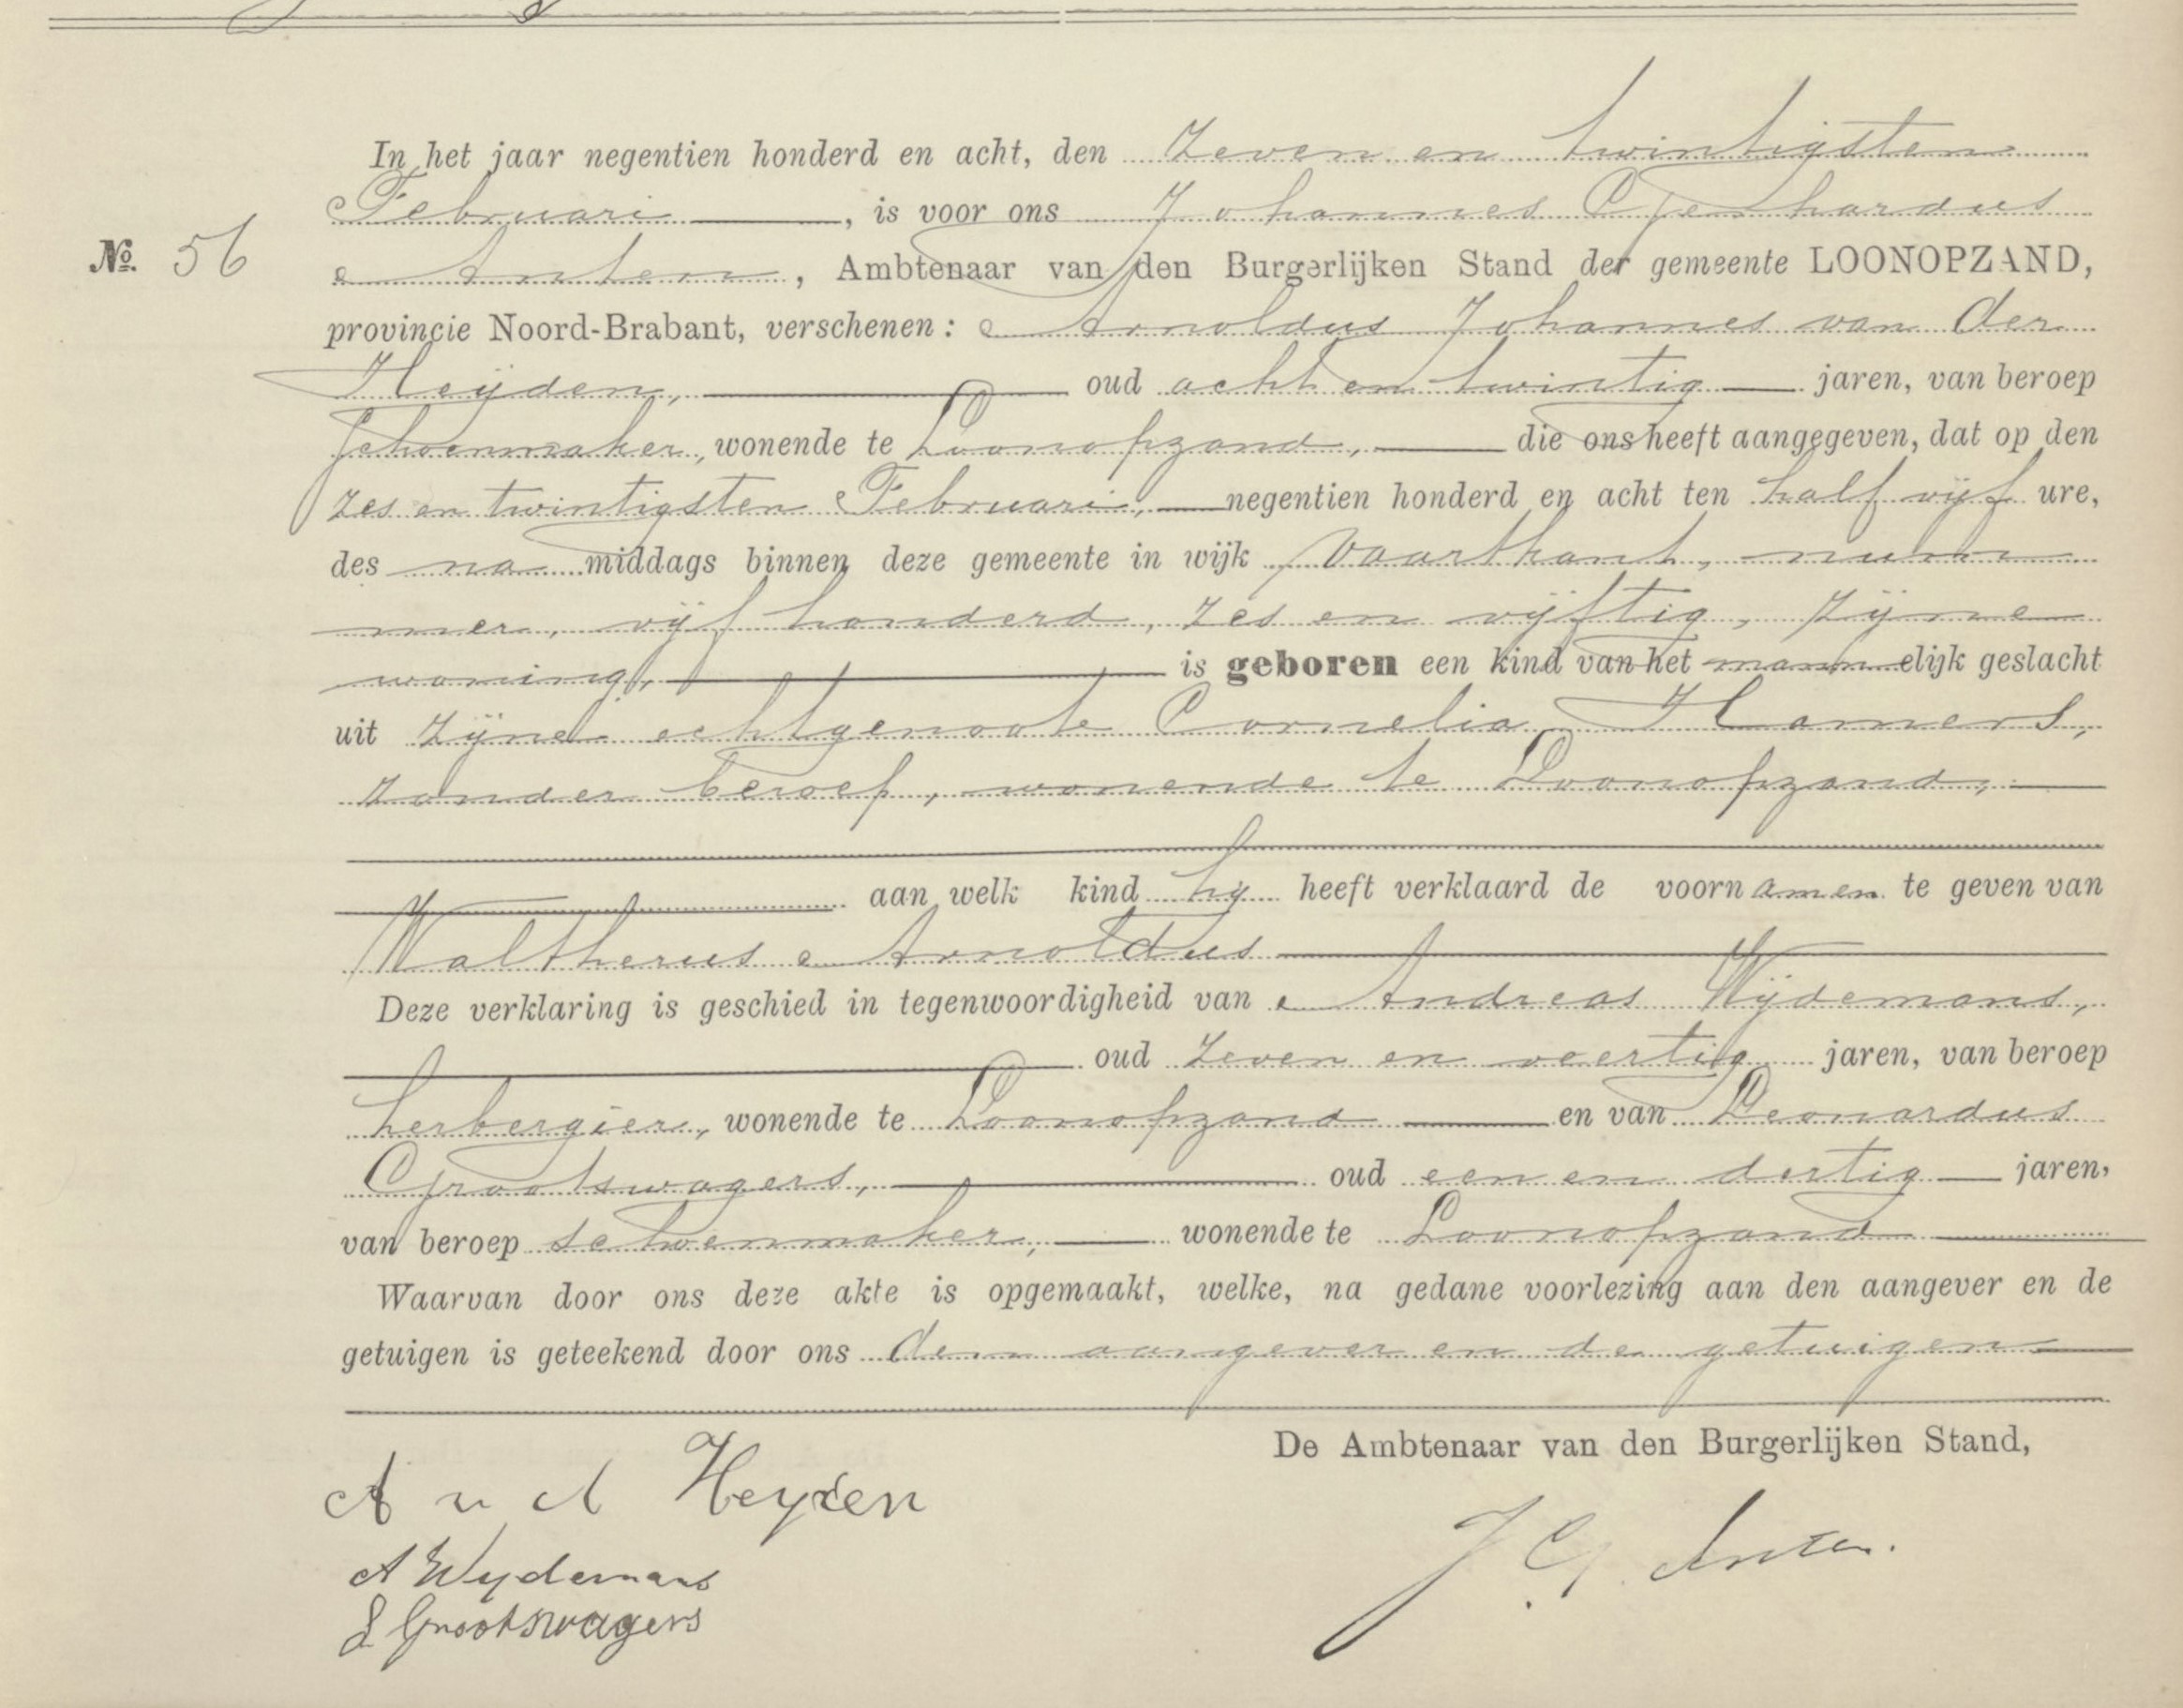 In het jaar negentien honderd en acht, den zeven en twintigsten
Februari, is voor ons Johannes Gerhardus
No. 56
Anten, Ambtenaar van den Burgerlijken Stand der gemeente LOONOPZAND,
provincie Noord-Brabant, verschenen: Arnoldus Johannes van der
Heijden, oud acht en twintig jaren, van beroep
schoenmaker, wonende te Loonopzand, die ons heeft aangegeven, dat op den
zes en twintigsten Februari, negentien honderd en acht ten half vijf ure,
des na middags binnen deze gemeente in wijk Vaartkant, num
mer, vijf honderd, zes en vijftig, zijne
woning, is geboren een kind van het mannelijk geslacht
uit zijne echtgenoote Cornelia Hamers,
zonder beroep, wonende te Loonopzand,
aan welk kind hij heeft verklaard de voornamen te geven van
Waltherus Arnoldus
Deze verklaring is geschied in tegenwoordigheid van Andreas Wijdemans,
oud zeven en veertig jaren, van beroep
herbergier, wonende te Loonopzand en van Leonardus
Grootswagers, oud een en dertig jaren,
van beroep schoenmaker, wonende te Loonopzand
Waarvan door ons deze akte is opgemaakt, welke, na gedane voorlezing aan den aangever en de
getuigen is geteekend door ons den aangever en de getuigen
De Ambtenaar van den Burgerlijken Stand,
A v d Heyden
J G Anten.
A Wydemans
L Grootswagers